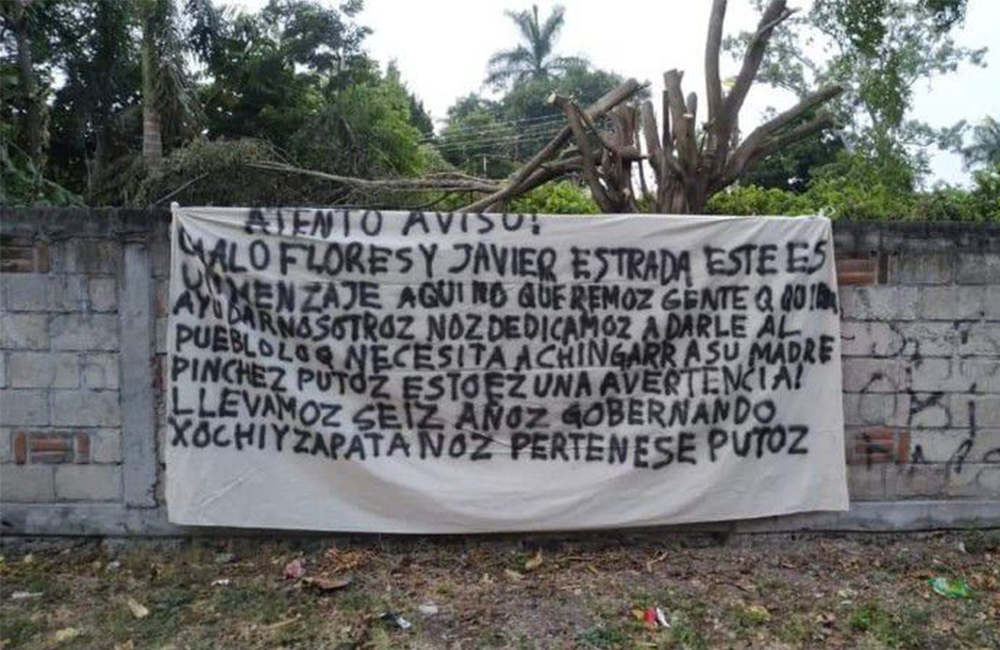 ATENTO AVISO!
LALO FLORES Y JAVIER ESTRADA ESTE ES
UN MENZAJE AQUI NO QUEREMOZ GENTE Q QUIERA
AYUDAR NOSOTROZ NOZ DEDICAMOZ A DARLE AL
PUEBLO LO Q NECESITA A CHINGAR R A SU MADRE
PINCHEZ PUTOZ ESTO EZ UNA AVERTENCIA!
LLEVAMOZ SEIZ AÑOZ GOBERNANDO
XOCHI Y ZAPATA NOZ PERTENESE PUTOZ